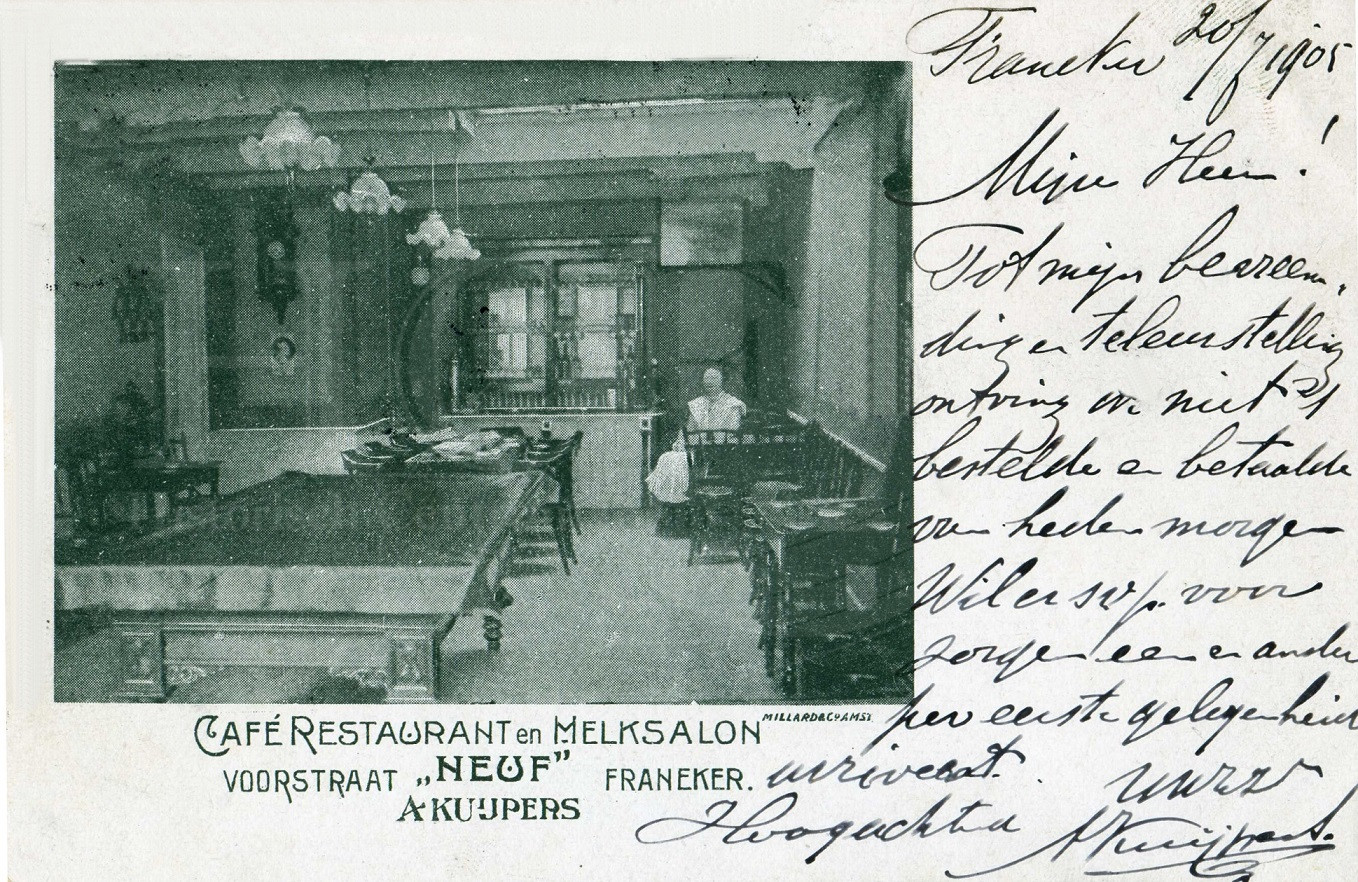 Franeker 20/7 1905
Mijn Heer!
Tot mijn bevreem-
ding en teleurstelling
ontving ik niet 't
bestelde en betaalde
van heden morgen
Wil er svp. voor
zorgen een en ander
per eerste gelegenheid
arriveert.
Hoogachtend
A Kuijpers.
MILLARD & Co AMST.
CAFÉ RESTAURANT en MELKSALON
VOORSTRAAT „NEUF” FRANEKER.
A KUIJPERS